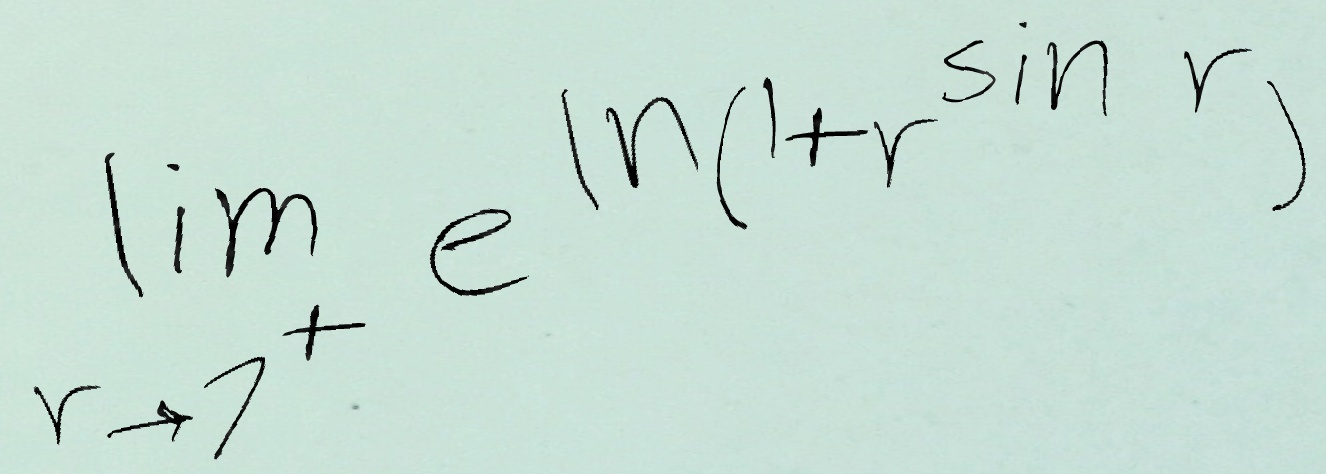 \lim_{r \to 7^+} e^{\ln(1+r^{\sin r})}